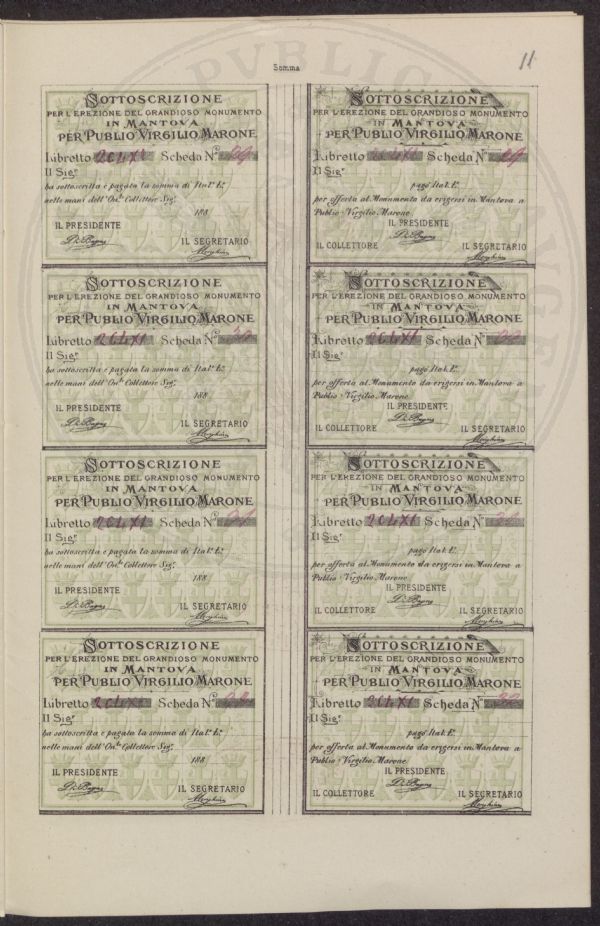 11
Somma
SOTTOSCRIZIONE
PER L'EREZIONE DEL GRANDIOSO MONUMENTO
IN MANTOVA
PER PUBLIO VIRGILIO MARONE
Libretto Scheda N.º 29
Il Sig.r
ha sottoscritta e pagata la somma di Ital.e L.e
nelle mani dell'On.le Collettore Sig.r
188
IL PRESIDENTE
IL SEGRETARIO
SOTTOSCRIZIONE
PER L'EREZIONE DEL GRANDIOSO MONUMENTO
IN MANTOVA
PER PUBLIO VIRGILIO MARONE
Libretto Scheda N.º 29
Il Sig.r
pagò Ital. L.e
per offerta al Monumento da erigersi in Mantova a
Publio Virgilio Marone
IL PRESIDENTE
IL COLLETTORE IL SEGRETARIO
SOTTOSCRIZIONE
PER L'EREZIONE DEL GRANDIOSO MONUMENTO
IN MANTOVA
PER PUBLIO VIRGILIO MARONE
Libretto Scheda N.º 30
Il Sig.r
ha sottoscritta e pagata la somma di Ital.e L.e
nelle mani dell'On.le Collettore Sig.r
188
IL PRESIDENTE
IL SEGRETARIO
SOTTOSCRIZIONE
PER L'EREZIONE DEL GRANDIOSO MONUMENTO
IN MANTOVA
PER PUBLIO VIRGILIO MARONE
Libretto Scheda N.º 30
Il Sig.r
pagò Ital. L.e
per offerta al Monumento da erigersi in Mantova a
Publio Virgilio Marone
IL PRESIDENTE
IL COLLETTORE IL SEGRETARIO
SOTTOSCRIZIONE
PER L'EREZIONE DEL GRANDIOSO MONUMENTO
IN MANTOVA
PER PUBLIO VIRGILIO MARONE
Libretto Scheda N.º 31
Il Sig.r
ha sottoscritta e pagata la somma di Ital.e L.e
nelle mani dell'On.le Collettore Sig.r
188
IL PRESIDENTE
IL SEGRETARIO
SOTTOSCRIZIONE
PER L'EREZIONE DEL GRANDIOSO MONUMENTO
IN MANTOVA
PER PUBLIO VIRGILIO MARONE
Libretto Scheda N.º 31
Il Sig.r
pagò Ital. L.e
per offerta al Monumento da erigersi in Mantova a
Publio Virgilio Marone
IL PRESIDENTE
IL COLLETTORE IL SEGRETARIO
SOTTOSCRIZIONE
PER L'EREZIONE DEL GRANDIOSO MONUMENTO
IN MANTOVA
PER PUBLIO VIRGILIO MARONE
Libretto Scheda N.º 32
Il Sig.r
ha sottoscritta e pagata la somma di Ital.e L.e
nelle mani dell'On.le Collettore Sig.r
188
IL PRESIDENTE
IL SEGRETARIO
SOTTOSCRIZIONE
PER L'EREZIONE DEL GRANDIOSO MONUMENTO
IN MANTOVA
PER PUBLIO VIRGILIO MARONE
Libretto Scheda N.º 32
Il Sig.r
pagò Ital. L.e
per offerta al Monumento da erigersi in Mantova a
Publio Virgilio Marone
IL PRESIDENTE
IL COLLETTORE IL SEGRETARIO